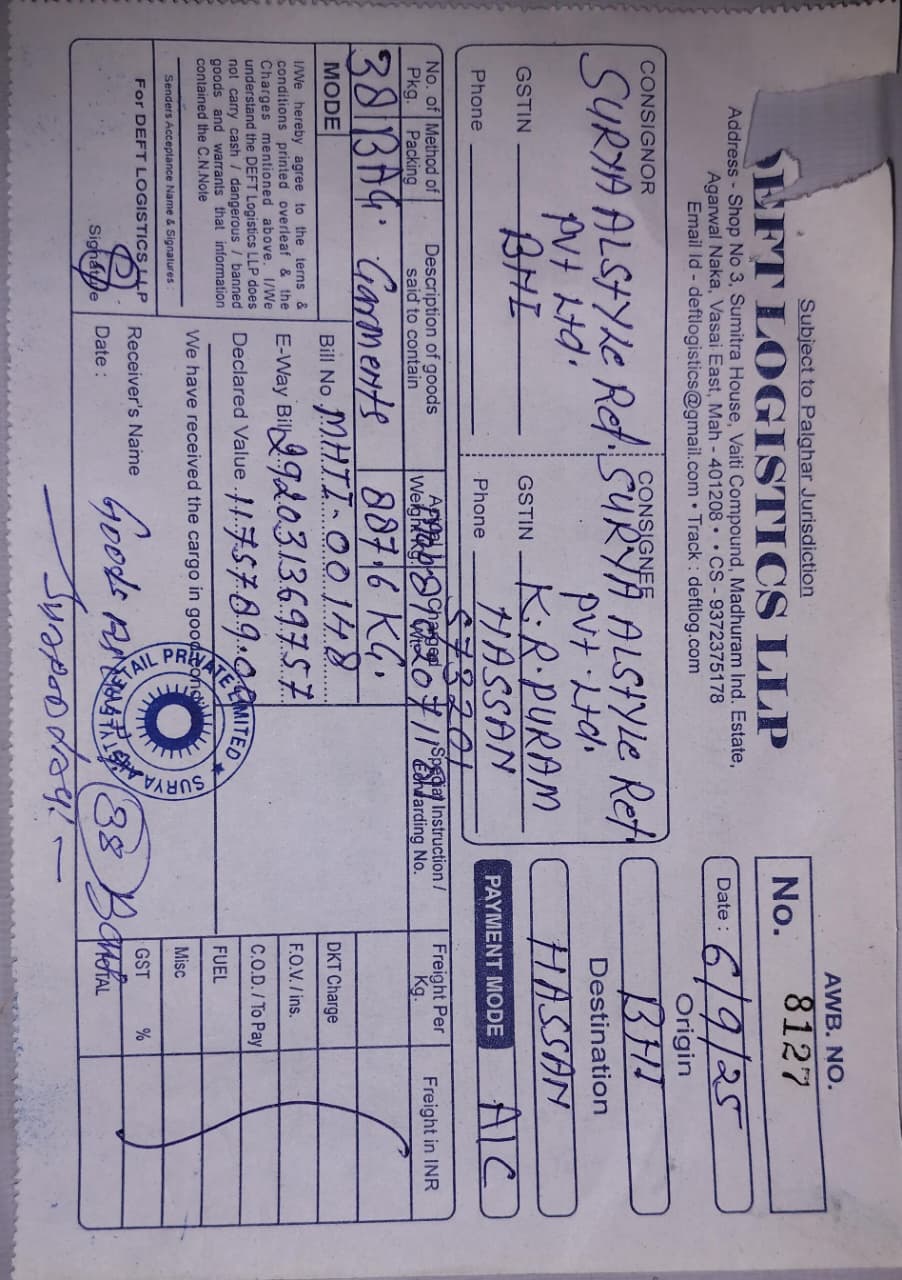 Subject to Palghar Jurisdiction
EFT LOGISTICS LLP
Address - Shop No 3, Sumitra House, Vaiti Compound, Madhuram Ind. Estate,
Agarwal Naka, Vasai East, Mah - 401208 • • CS - 9372375178
Email Id - deftlogistics@gmail.com • Track : deftlog.com
AWB. NO.
No. 8127
Date : 6/9/25
Origin
BHI
Destination
HASSAN
PAYMENT MODE A/C
CONSIGNOR
SURYA ALSTYLE Ret.
PVT Ltd.
BHI
GSTIN
Phone
CONSIGNEE
SURYA ALSTYLE Ret.
PVT. Ltd.
GSTIN K.R.PURAM
HASSAN
Phone
573201
No. of Pkg.
Method of Packing
Description of goods said to contain
Weight Kg.
Charged
Special Instruction / Forwarding No.
Freight Per Kg.
Freight in INR
38 BAG. Garments 887.6 KG.
MODE
I/We hereby agree to the terns &
conditions printed overleaf & the
Charges mentioned above. I/We
understand the DEFT Logistics LLP does
not carry cash / dangerous / banned
goods and warrants that information
contained the C.N.Note
Senders Acceptance Name & Signatures :
For DEFT LOGISTICS LLP
Signature
Bill No MHTI-00148
E-Way Bill 292031369757
Declared Value 1175789.00
We have received the cargo in good
Receiver's Name
Date :
Goods
38
SURYA ALSTYLE RETAIL PRIVATE LIMITED
DKT Charge
F.O.V. / ins.
C.O.D. / To Pay
FUEL
Misc
GST %
TOTAL